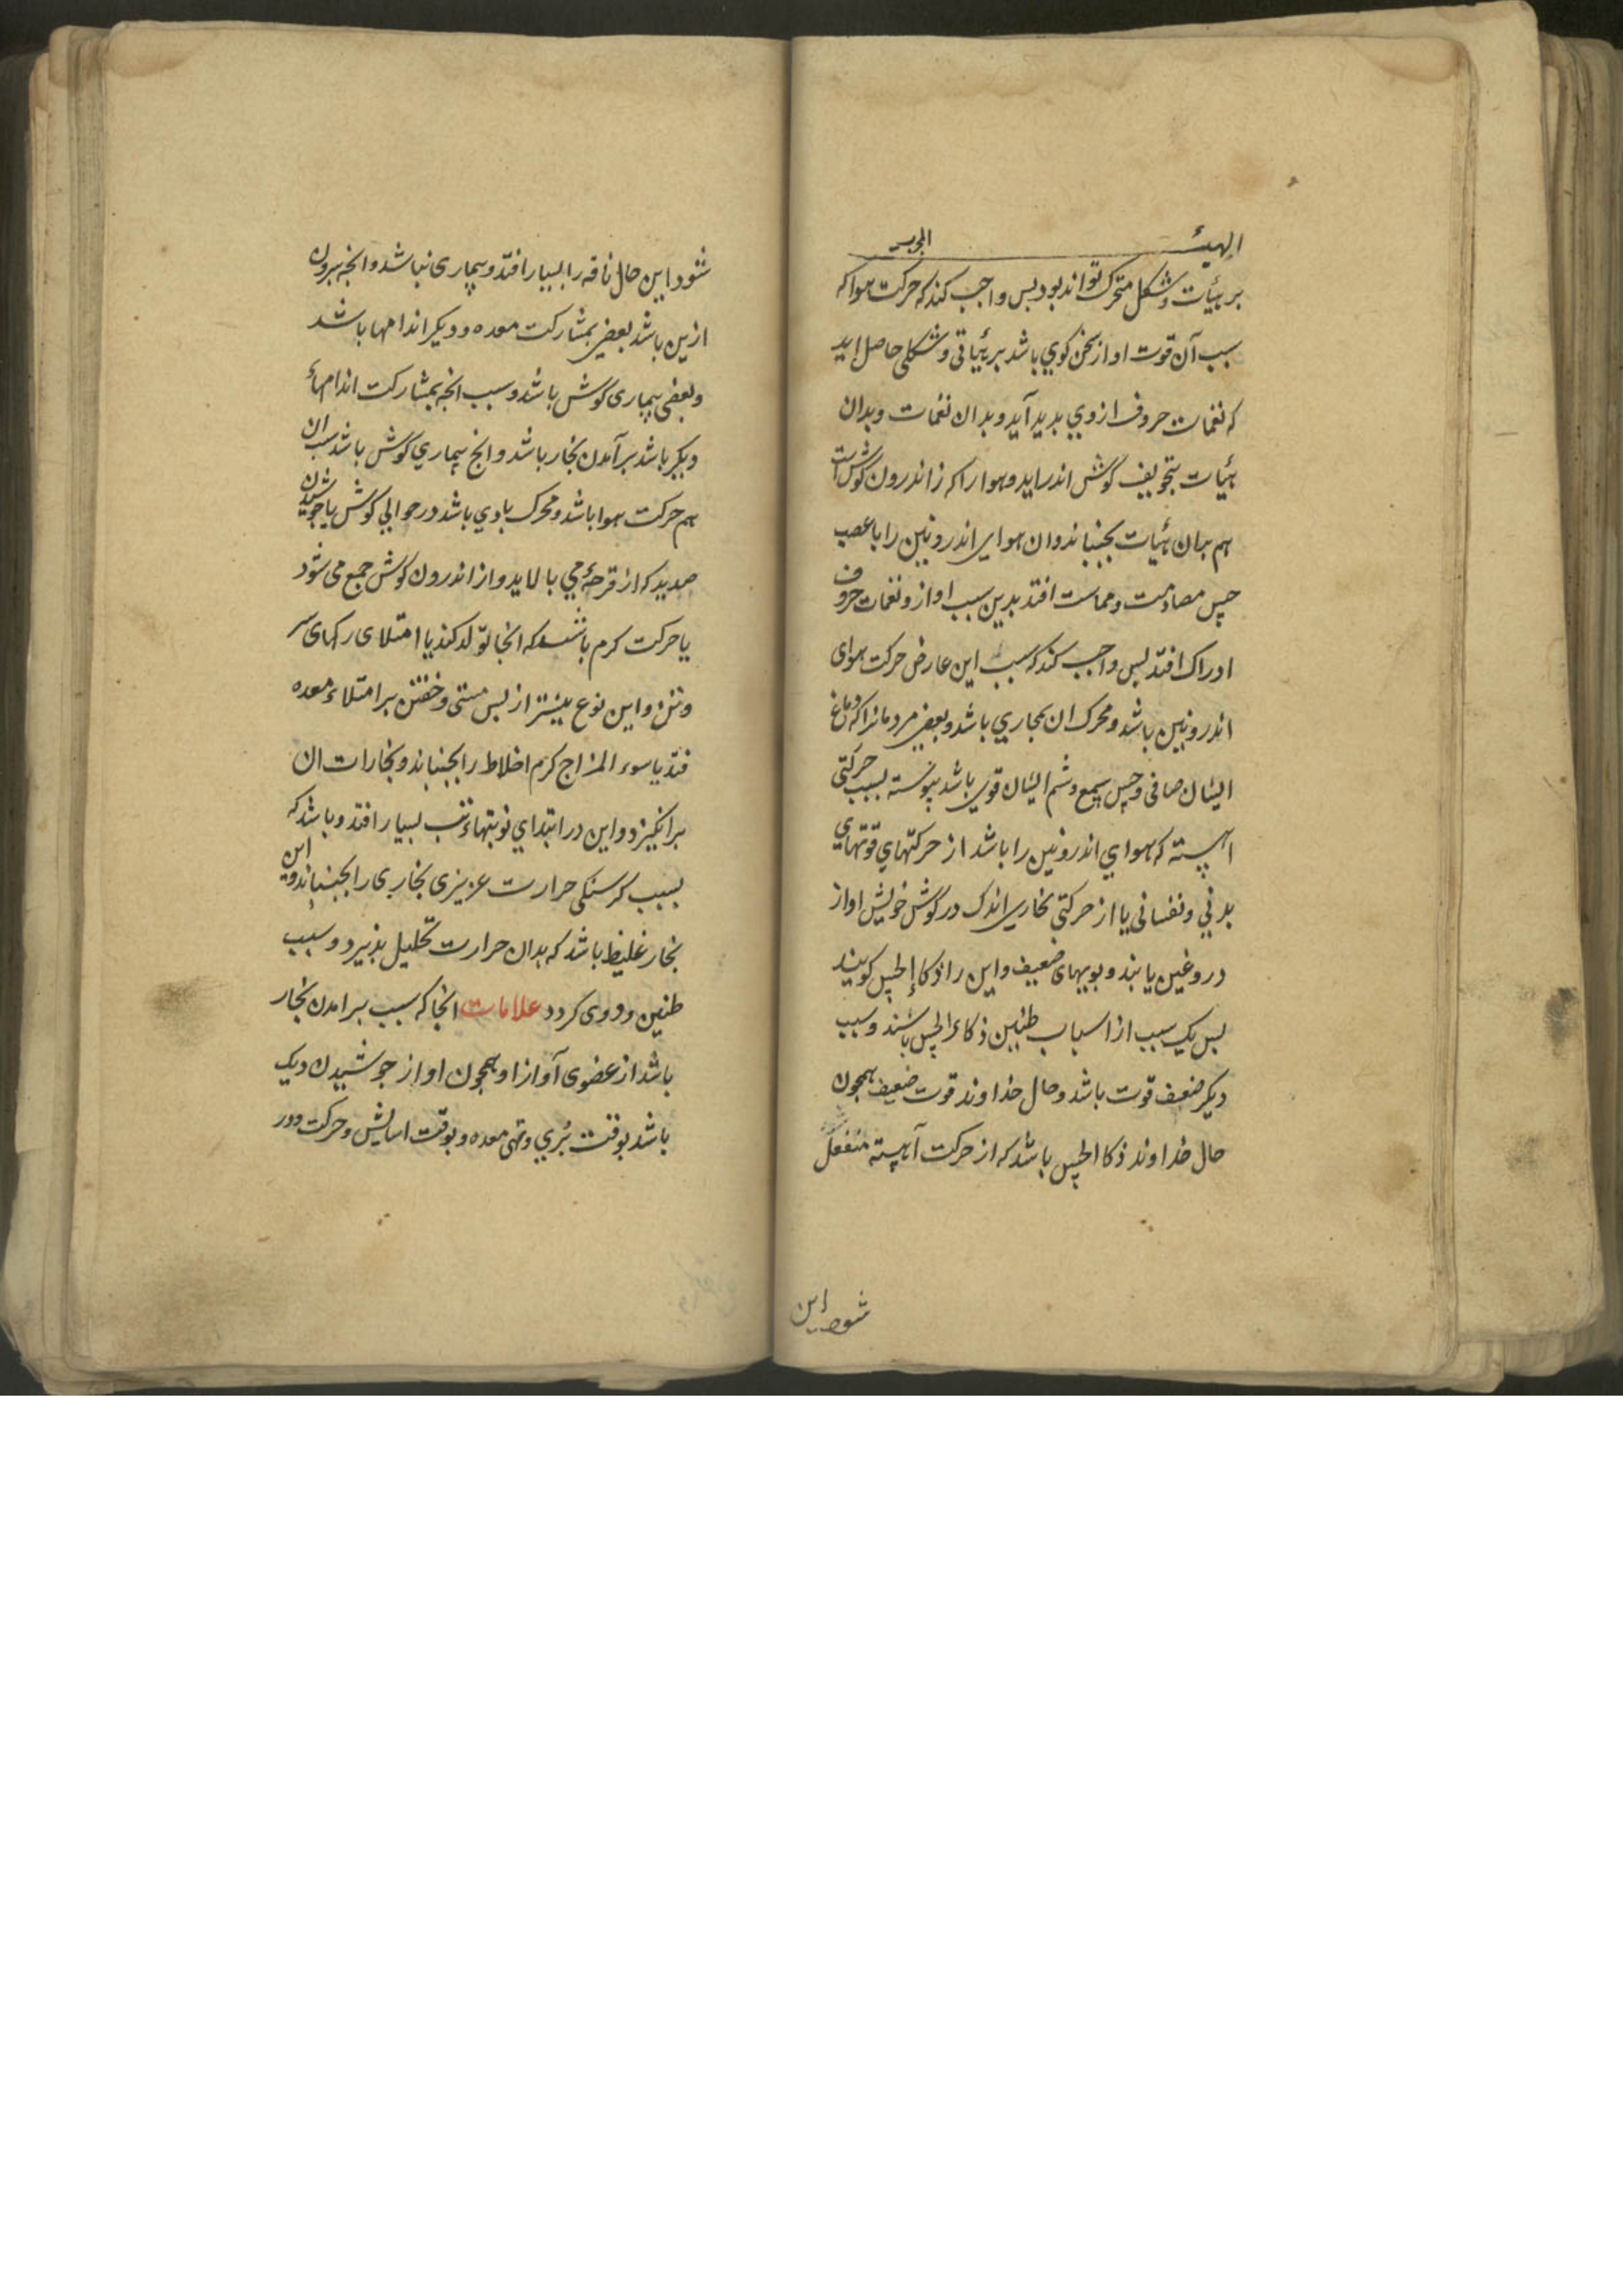 الهیئـ
بر هیئات و شکل متحرک تواند بود بس واجب کند که حرکت هوا که
سبب آن قوت اواز سخن کوی باشد بر هیأتی و شکلی حاصل اید
که نغمات حروف از وی بدید آید و بدان نغمات و بدان
هیئات بتجویف کوش اندر اید و هوا را که ز اندرون کوش است
هم بدان هیئات بجنباند و ان هوای اندرونین را با عصب
حس مصادمت و مماست افتد بدین سبب اواز و نغمات حروف
ادراک افتد بس واجب کند که سبب این عارض حرکت هوای
اندرونین باشد و محرک ان بخاری باشد و بعضی مردمانرا که دماغ
ایشان صافی و حس سمع و شم ایشان قوی باشد بیوسته بسبب حرکتی
اهسته که هوای اندرونین را باشد از حرکتهای قوتهای
بدنی و نفسانی یا از حرکتی بخاری اندک در کوش خویش اواز
دروغین یابند و بویهای ضعیف و این را ذکا الحس کویند
بس یک سبب از اسباب طنین ذکاء الحس باشند و سبب
دیکر ضعف قوت باشد و حال خداوند قوت ضعیف همچون
حال خداوند ذکا الحس باشد که از حرکت آهسته منفعل
شود این
شود این حال ناقه را بسیار افتد و بیماری نباشد و انچه بیرون
ازین باشد بعضی بمشارکت معده و دیکر اندامها باشد
و بعضی بیماری کوش باشد و سبب انچه بمشارکت اندامهاء
دیکر باشد بر آمدن بخار باشد و انچ بیماری کوش باشد سبب ان
هم حرکت هوا باشد و محرک بادی باشد در حوالی کوش یا جوشیدن
صدید که از قرحهٔ می بالاید و از اندرون کوش جمع می شود
یا حرکت کرم باشد که انجا تولد کند یا امتلای رکهای سر
و تن و این نوع بیشتر از بس مستی و خفتن بر امتلاء معده
فتد یا سوء المزاج کرم اخلاط را بجنباند و بخارات ان
برانکیزد و این در ابتدای نوبتهاء تب بسیار افتد و باشد که
بسبب کرسنکی حرارت عزیزی بخاری را بجنباند و این
بخار غلیظ باشد که بدان حرارت تحلیل بذیرد و سبب
طنین و دوی کردد علامات انجا که سبب بر امدن بخار
باشد از عضوی آواز او همچون اواز جوشیدن دیک
باشد بوقت بری و تهی معده و بوقت اسایش و حرکت دور